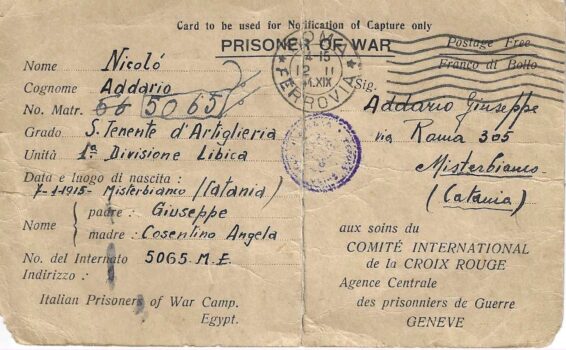 Card to be used for Notification of Capture only
PRISONER OF WAR
Postage Free
Franco di Bollo
ROMA
15
12 II
XIX
FERROVIA
Nome Nicoló
Cognome Addario
No. Matr. 5065
Grado S. Tenente d'Artiglieria
Unità 1ª Divisione Libica
Data e luogo di nascita :
7-1-1915- Misterbianco (Catania)
Nome { padre : Giuseppe
madre : Cosentino Angela
No. del Internato 5065 M.E.
Indirizzo :
Italian Prisoners of War Camp.
Egypt.
Sig.
Addario Giuseppe
via Roma 305
Misterbianco
(Catania)
aux soins du
COMITÉ INTERNATIONAL
de la CROIX ROUGE
Agence Centrale
des prisonniers de Guerre
GENEVE